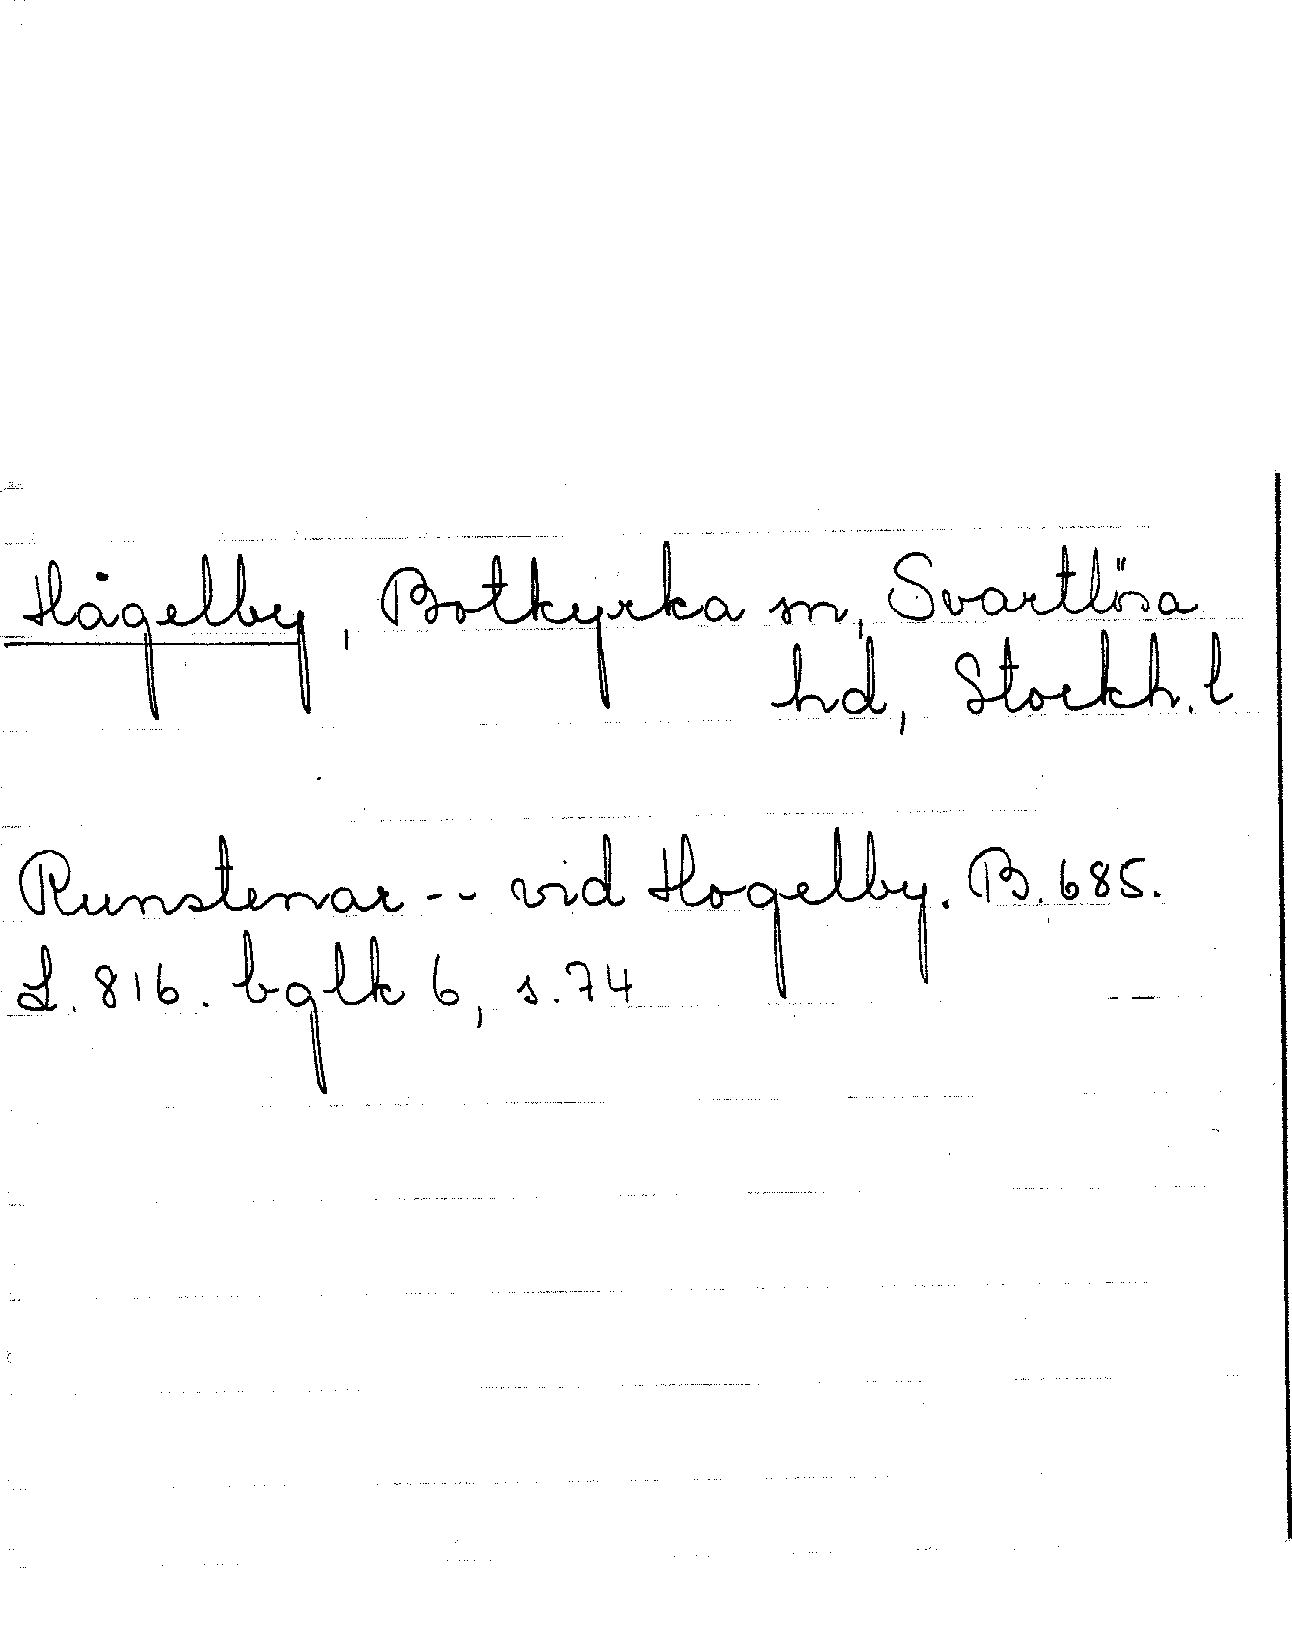 Hågelby, Botkyrka sn, Svartlösa
hd, Stockh. l
Runstenar -- vid Hogelby. B. 685.
L. 816. bglk 6, s. 74